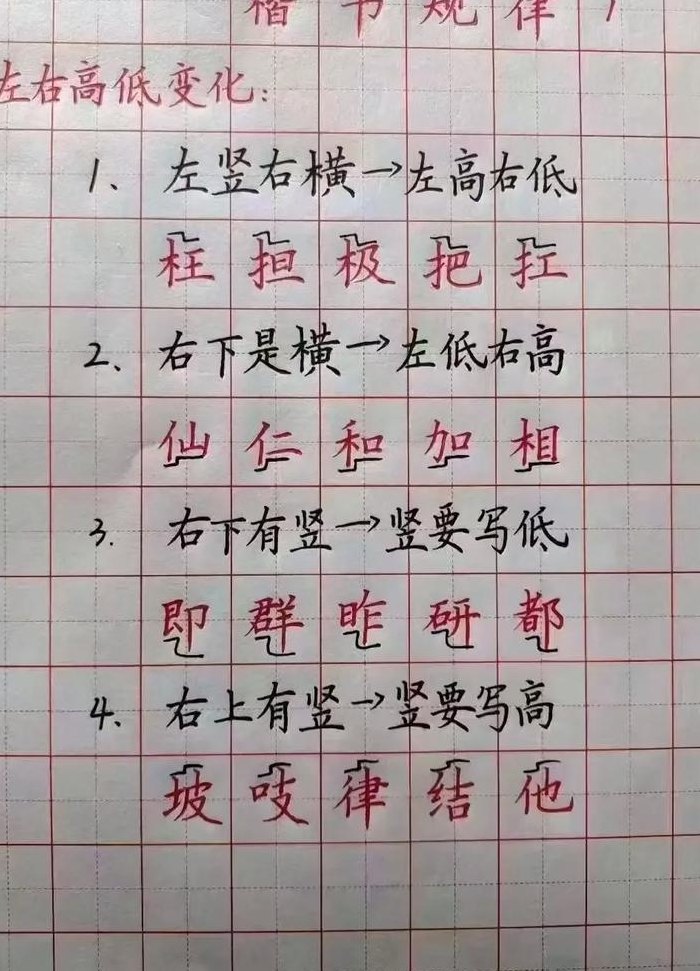 楷书规律1
左右高低变化:
1、左竖右横→左高右低
柱 担 极 把 扛
2、右下是横→左低右高
仙 仁 和 加 相
3.右下有竖→竖要写低
即 群 昨 研 都
4、右上有竖→竖要写高
坡 吱 律 结 他